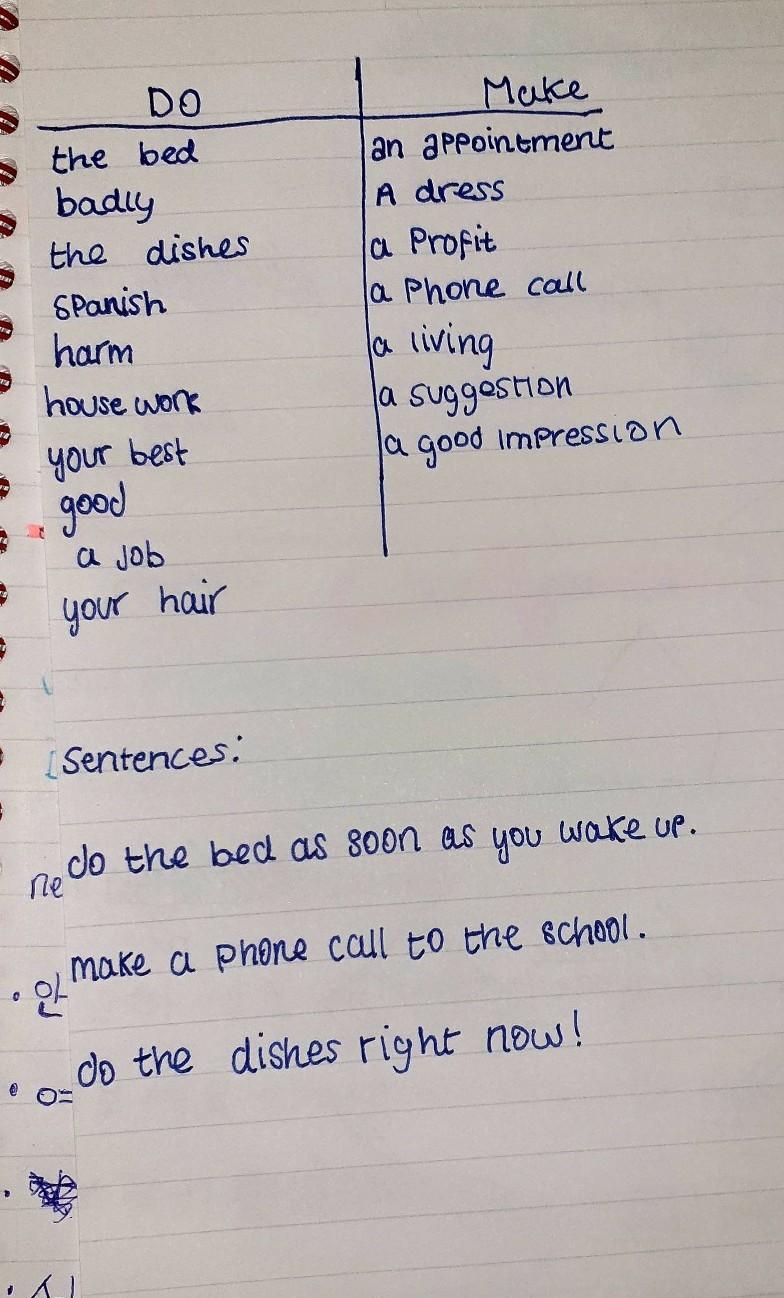 DO
Make
the bed
an appointment
badly
A dress
the dishes
a Profit
Spanish
a Phone call
harm
a living
house work
a suggestion
your best
a good impression
good
a job
your hair
Sentences:
do the bed as soon as you wake up.
ne
make a phone call to the school.
안
do the dishes right now!